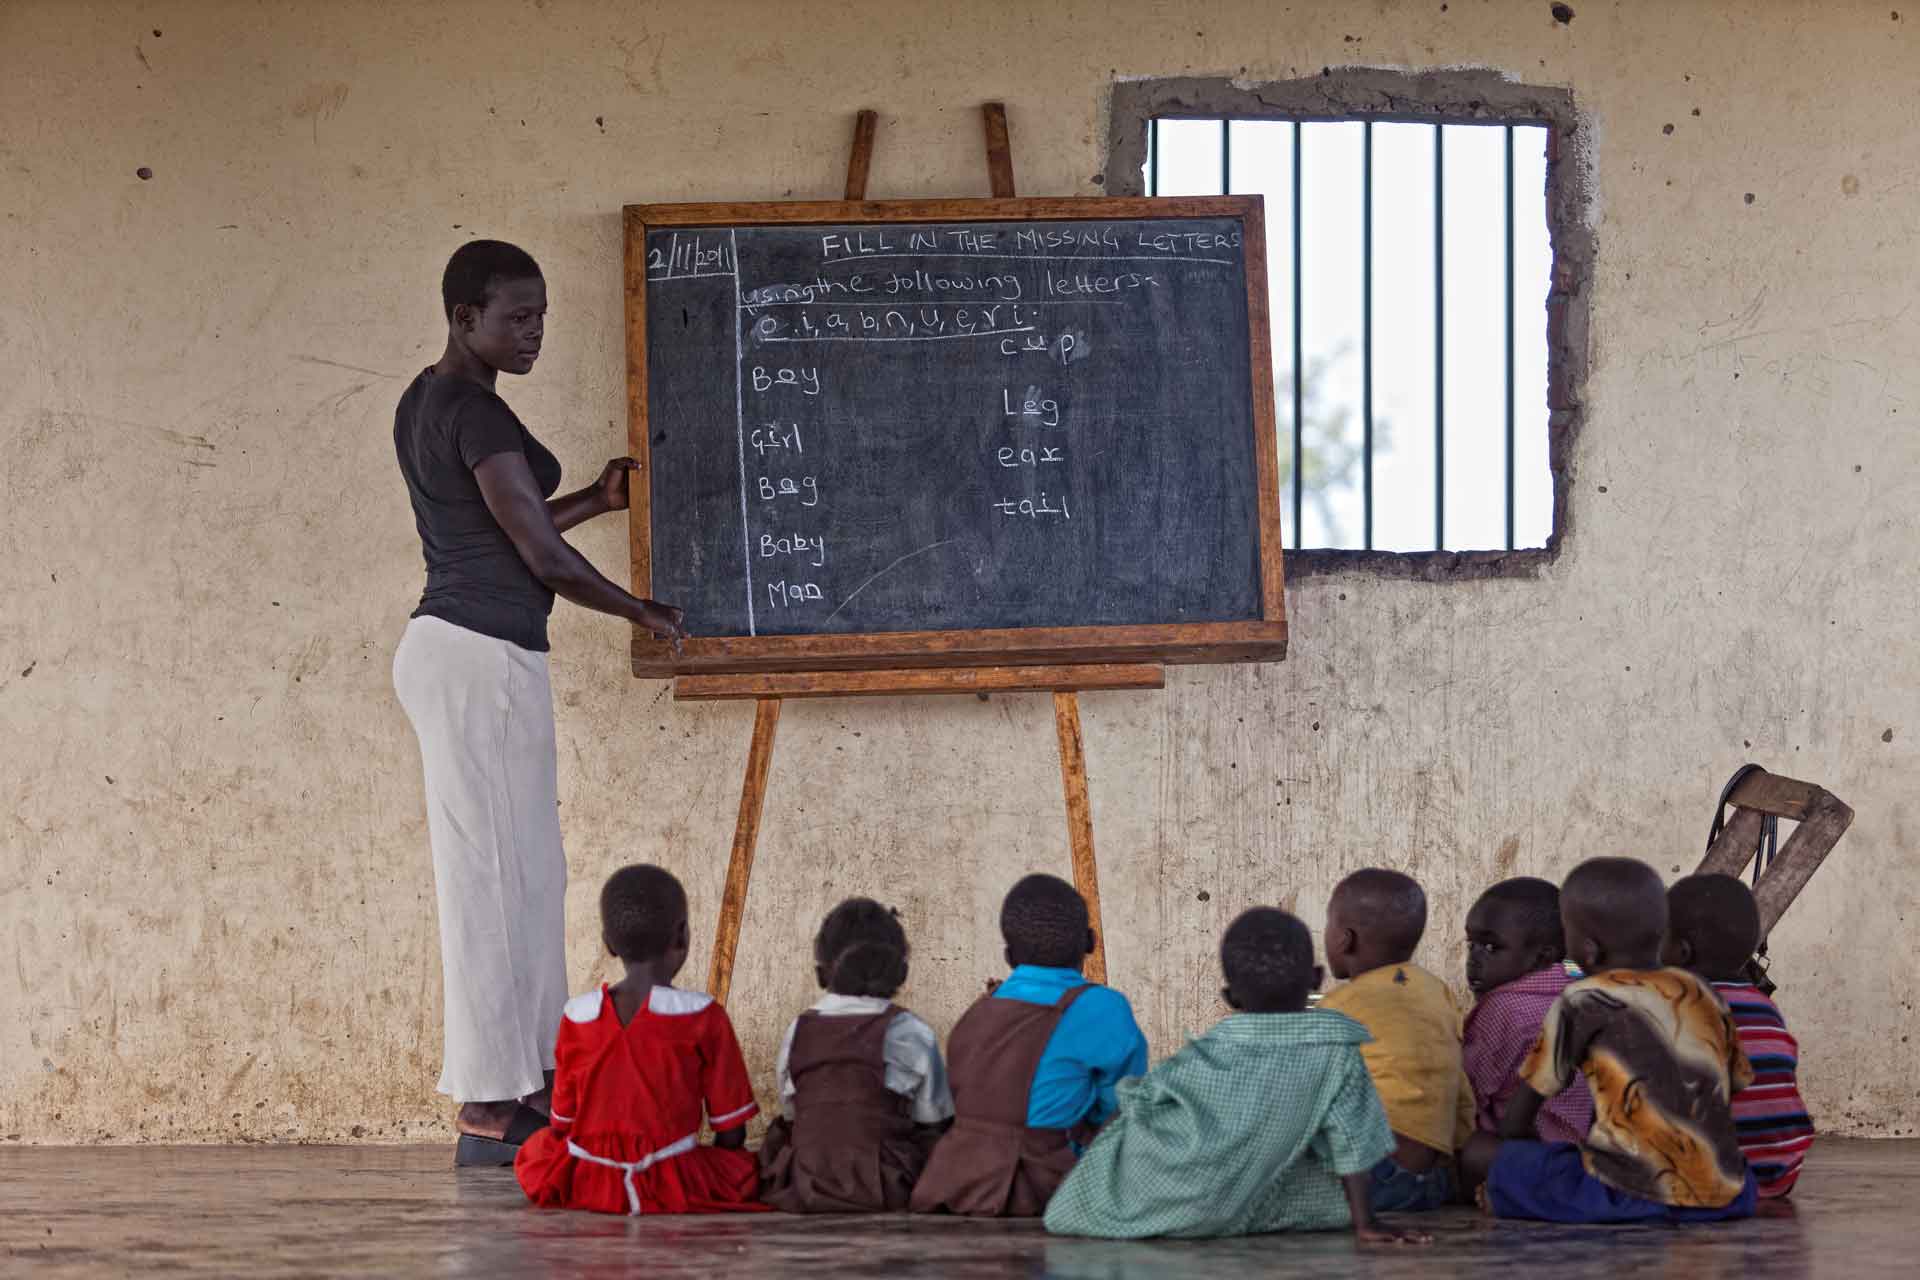 2/11/2011
FILL IN THE MISSING LETTERS
using the following letters:-
o, i, a, b, n, u, e, r i.
Boy
girl
Bag
Baby
Man
cup
Leg
ear
tail